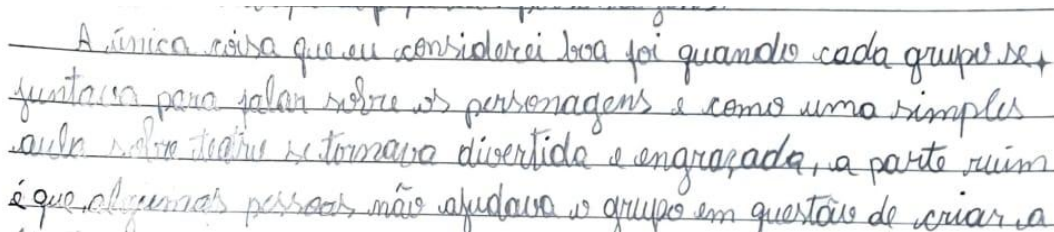 A única coisa que eu considerei boa foi quando cada grupo se
juntava para falar sobre os personagens e como uma simples
aula sobre teatro se tornava divertida e engraçada, a parte ruim
é que algumas pessoas não ajudava o grupo em questão de criar a